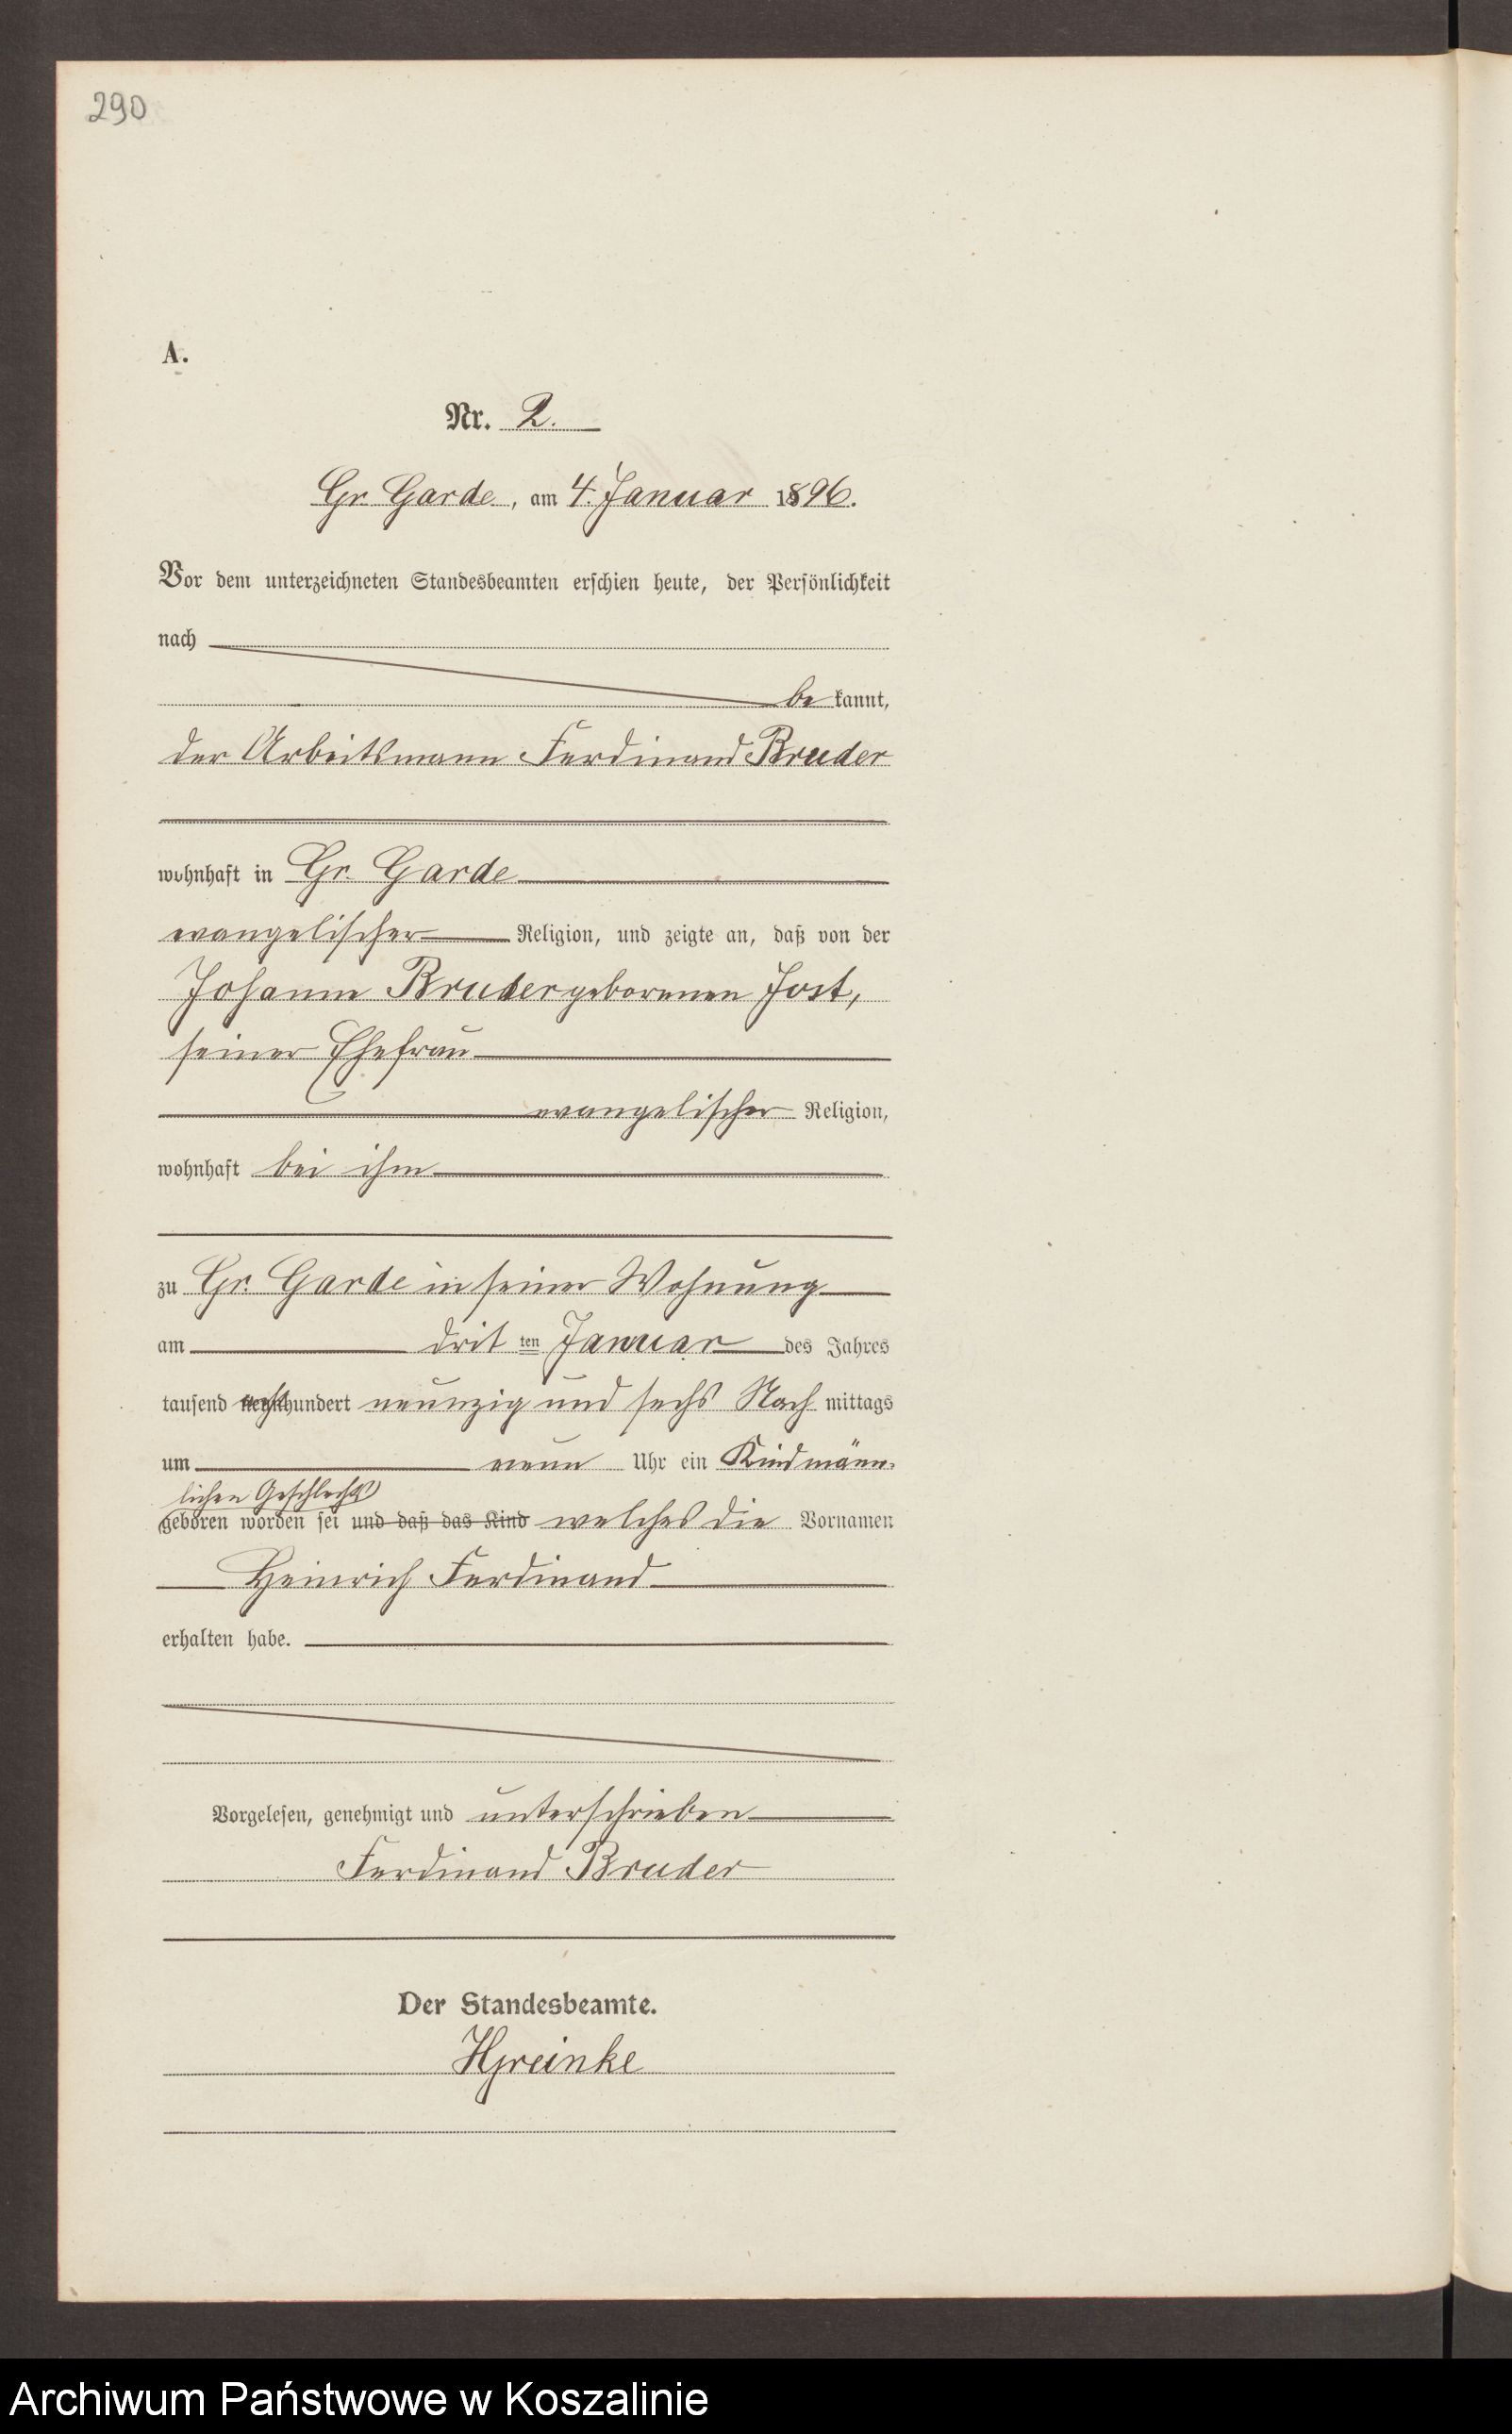 290
A.
Nr. 2.
Gr. Garde, am 4. Januar 1896.
Vor dem unterzeichneten Standesbeamten erschien heute, der Persönlichkeit
nach
be kannt,
der Arbeitsmann Ferdinand Bruder
wohnhaft in Gr. Garde
evangelischer Religion, und zeigte an, daß von der
Johanne Bruder geborenen Jost,
seiner Ehefrau
evangelischer Religion,
wohnhaft bei ihm
zu Gr. Garde in seiner Wohnung
am drit ten Januar des Jahres
tausend acht hundert neunzig und sechs Nach mittags
um neun Uhr ein Kind männ-
lichen Geschlechts
geboren worden sei und daß das Kind welches die Vornamen
Heinrich Ferdinand
erhalten habe.
Vorgelesen, genehmigt und unterschrieben
Ferdinand Bruder
Der Standesbeamte.
Archiwum Państwowe w Koszalinie